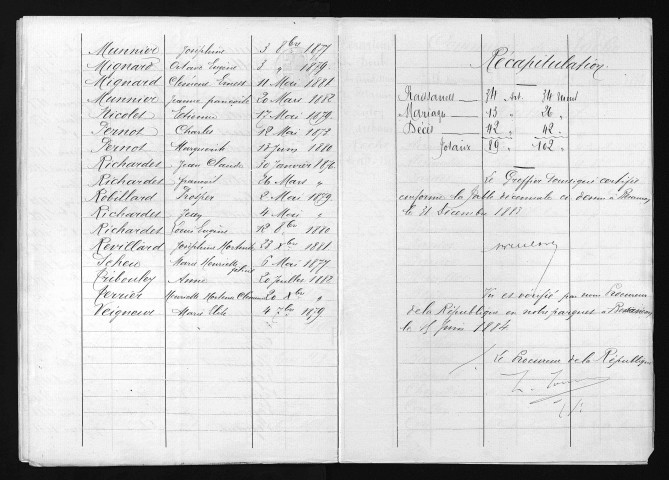 Munnier Joséphine 3 8bre 1877
Mignard Octave Eugène 3 " 1879
Mignard Clément Ernest 11 Mai 1881
Munnier Jeanne françoise 20 Mars 1882
Nicolet Etienne 17 Mai 1879
Pernot Charles 12 Mai 1878
Pernot Marguerite 18 Juin 1880
Richardet Jean Claude 30 Janvier
Richardet françois 26 Mars "
Robillard Prosper 2 Mai 1879
Richardet Jules 4 Mai "
Richardet Louis Eugène 12 8bre 1880
Revillard Joséphine Hortense 28 Xbre 1881
Scheu Marie Henriette 6 Mai 1877
Tribouley Anne 20 Juillet 1882
Verrier Marcelle Hortense 20 Xbre "
Veigneur Marie 4 7bre 1879
Récapitulation
Naissances 34 Act. 34 Nom
Mariages 13 " 26 "
Décès 42 " 42 "
Totaux 89 " 102 "
Le Greffier soussigné certifie
conforme la Table décennale ci dessus à Besançon
le 31 Décembre 1883
Vu et vérifié par nous Procureur
de la République en notre parquet à Besançon
le 15 Juin 1884
Le Procureur de la République